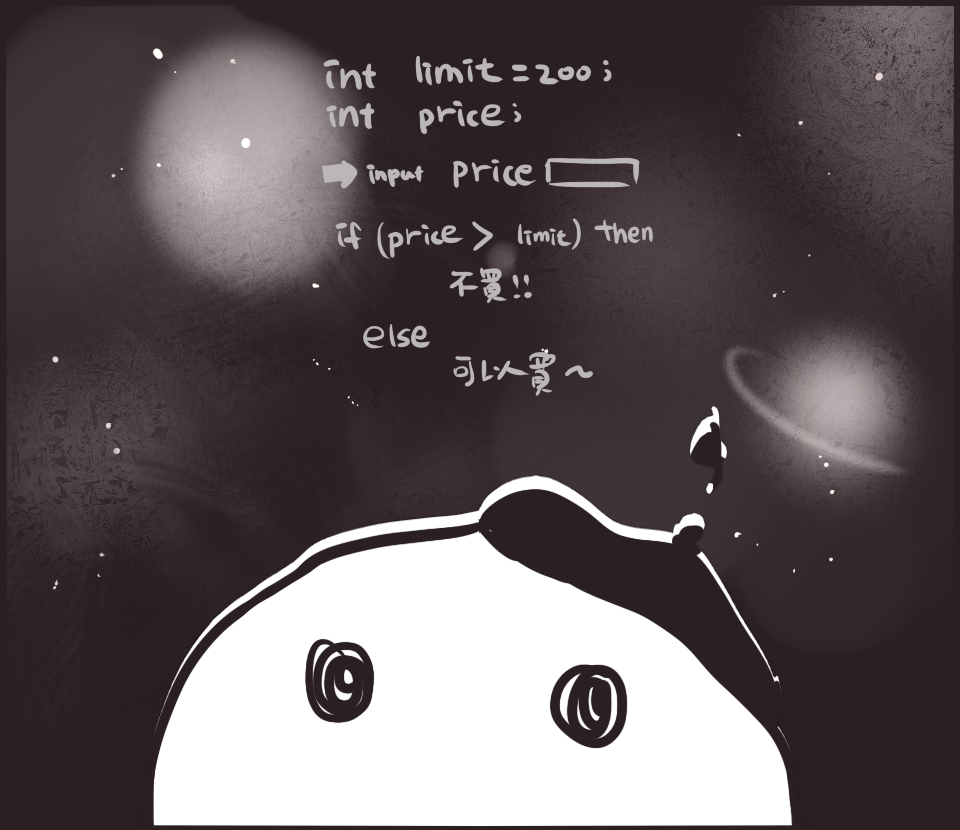 int limit = 200;
int price;
input price
if (price > limit) then
不買!!
else
可以買~